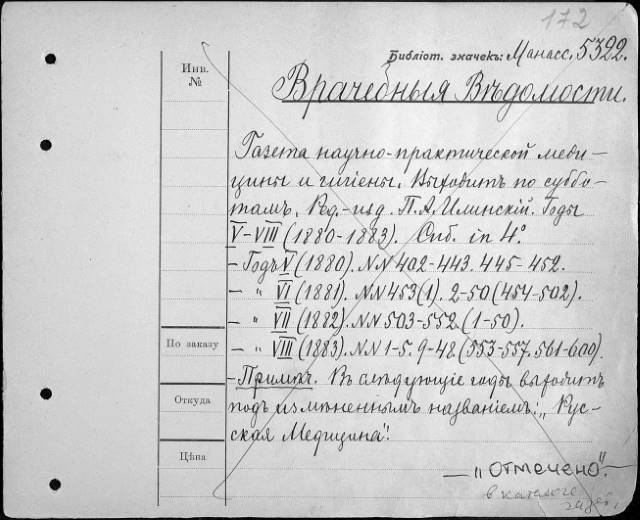 172
Библіот. значекъ: Манасс. 5322.
Инв.
№
Врачебныя Вѣдомости.
Газета научно-практической меди-
цины и гигіены. Выходитъ по суббо-
тамъ. Ред.-изд. П.А.Илинскій. Годы
V-VIII (1880-1883). Спб. in 4°.
- Годъ V (1880). NN 402-443. 445-452.
- " VI (1881). NN 453(1). 2-50 (454-502).
- " VII (1882). NN 503-552 (1-50).
- " VIII (1883). NN 1-5. 9-48 (553-557. 561-600).
По заказу
- Примѣч. Въ слѣдующіе годы выходитъ
Откуда
подъ измѣненнымъ названіемъ: „Рус-
ская Медицина".
Цѣна
— „отмечено". —
в каталоге
газет.